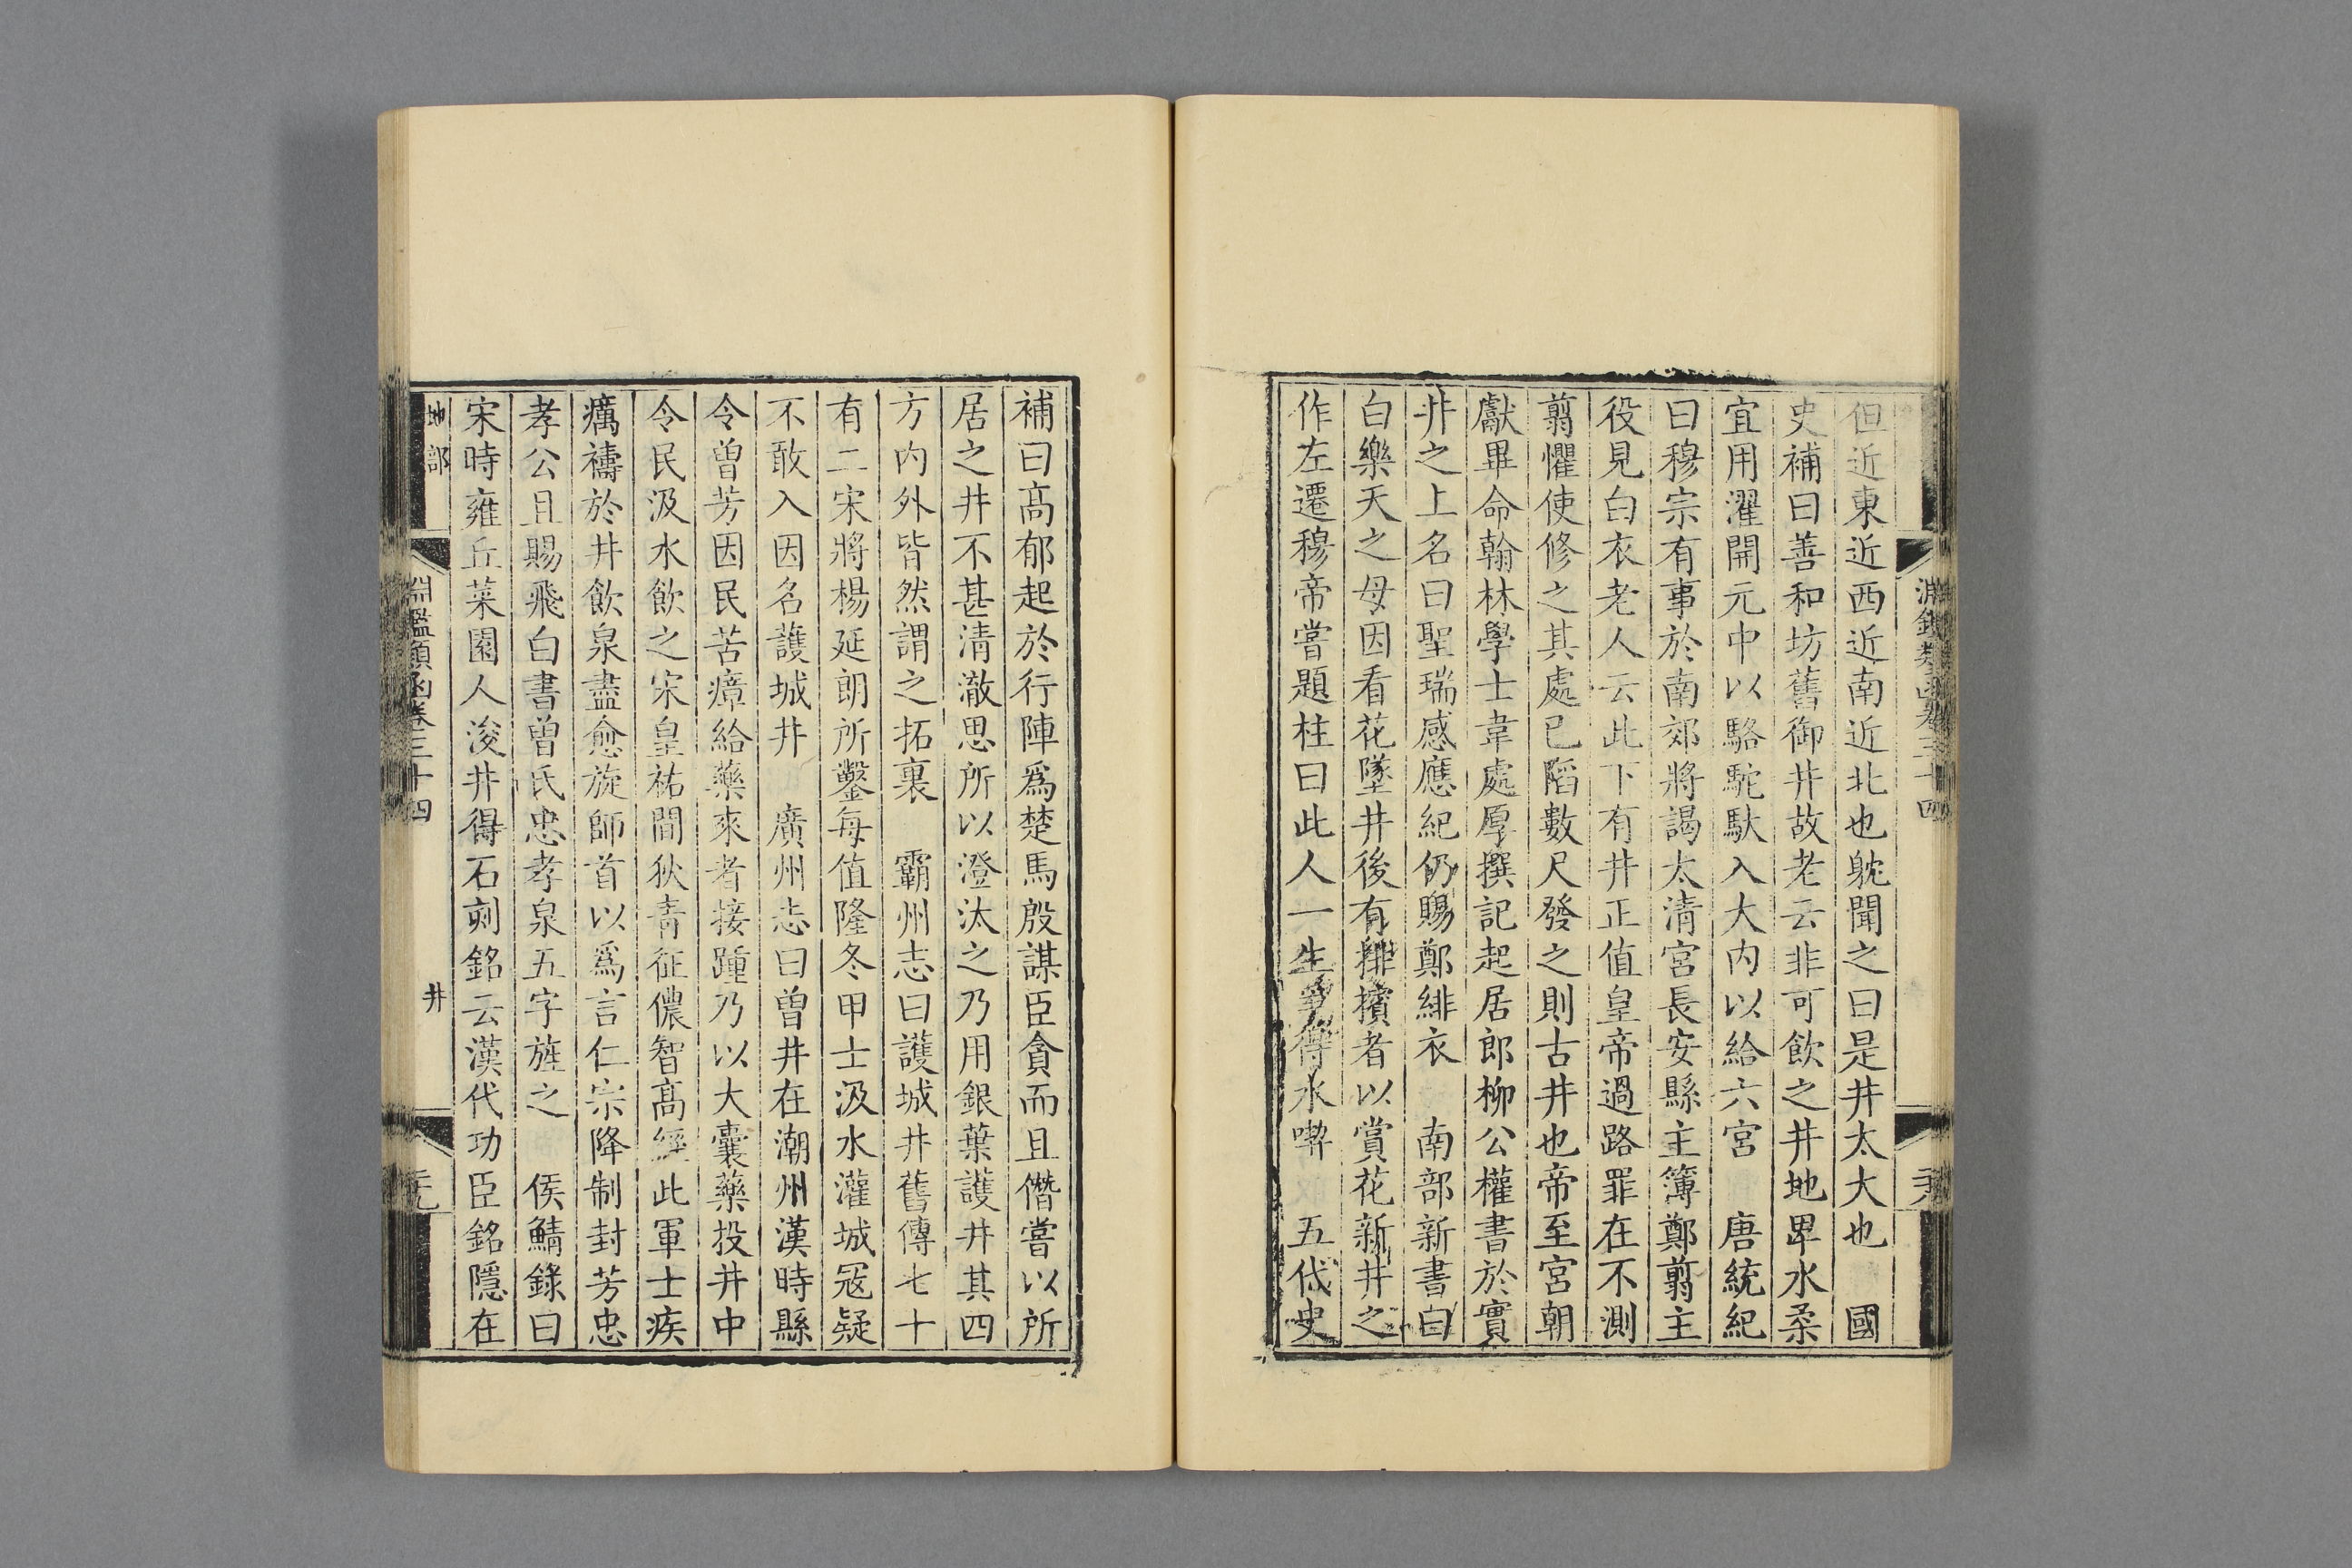 淵鑑類函卷三十四
但近東近西近南近北也躭聞之曰是井太大也　國
史補曰善和坊舊御井故老云非可飲之井地卑水柔
宜用濯開元中以駱駝馱入大内以給六宮　唐統紀
曰穆宗有事於南郊將謁太清宮長安縣主簿鄭翦主
役見白衣老人云此下有井正值皇帝過路罪在不測
翦懼使修之其處已陷數尺發之則古井也帝至宮朝
獻畢命翰林學士韋處厚撰記起居郎柳公權書於實
井之上名曰聖瑞感應紀仍賜鄭緋衣　南部新書曰
白樂天之母因看花墜井後有排擯者以賞花新井之
作左遷穆帝嘗題柱曰此人一生爭得水喫　五代史
補曰高郁起於行陣爲楚馬殷謀臣貪而且僭嘗以所
居之井不甚清澈思所以澄汰之乃用銀葉護井其四
方内外皆然謂之拓裏　霸州志曰護城井舊傳七十
有二宋將楊延朗所鑿每值隆冬甲士汲水灌城冦疑
不敢入因名護城井　廣州志曰曾井在潮州漢時縣
令曾芳因民苦瘴給藥來者接踵乃以大囊藥投井中
令民汲水飲之宋皇祐間狄青征儂智高經此軍士疾
癘禱於井飲泉盡愈旋師首以爲言仁宗降制封芳忠
孝公且賜飛白書曾氏忠孝泉五字旌之　侯鯖錄曰
宋時雍丘菜園人浚井得石刻銘云漢代功臣銘隱在
部
淵鑑類函卷三十四
井